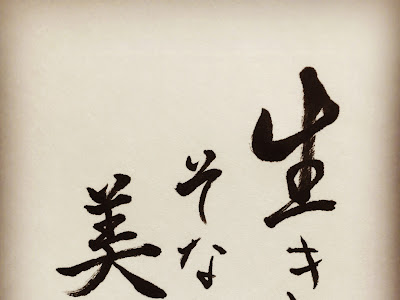 生き
そな
美